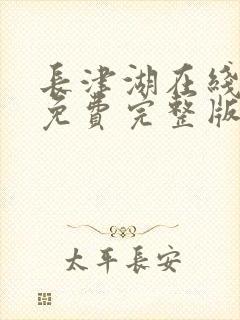 長津湖在綫
免費完整版
太平長安